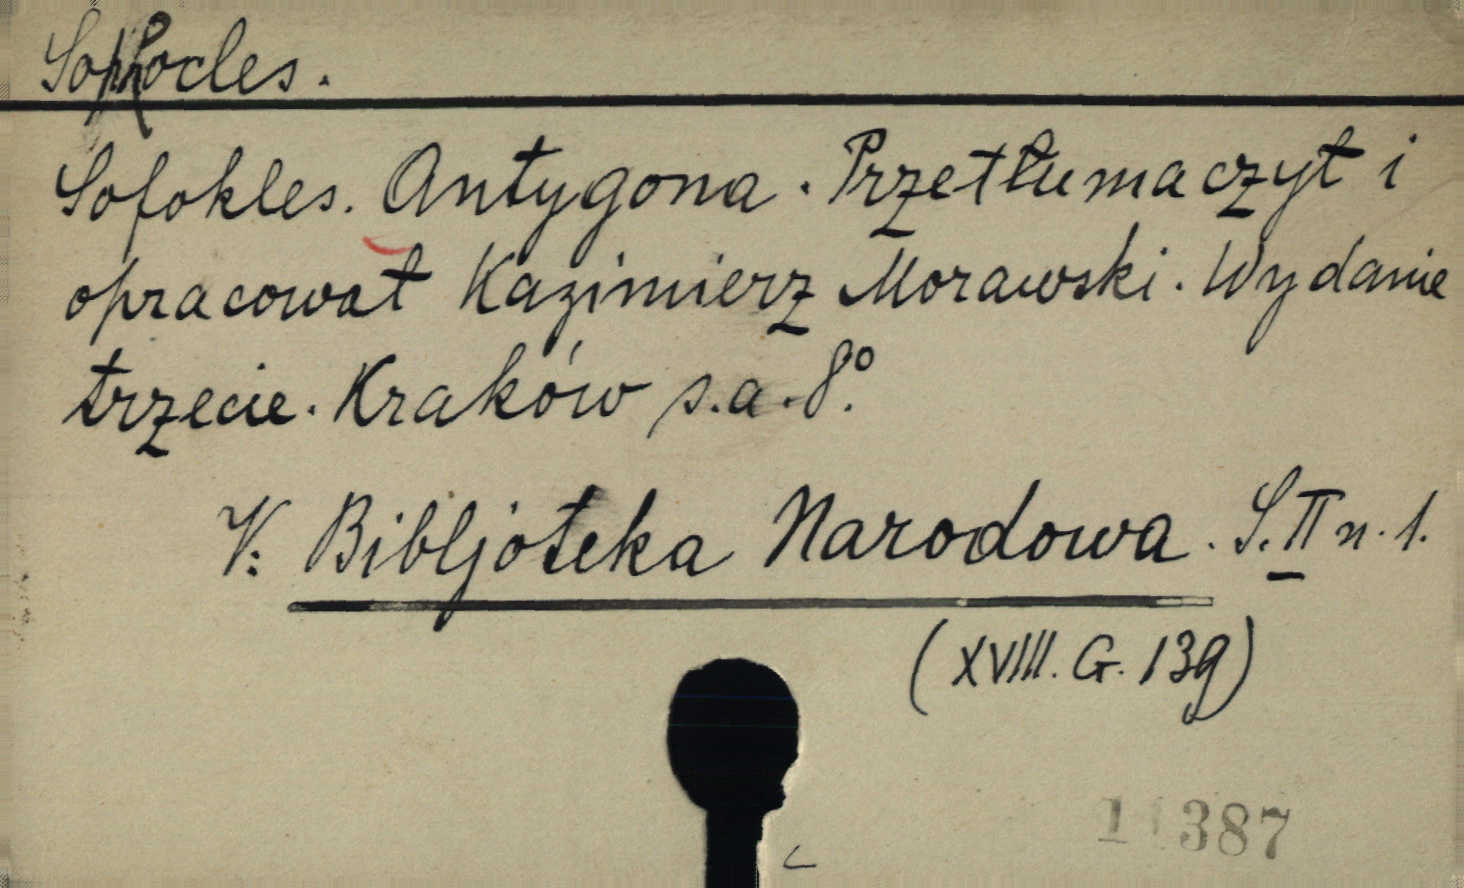 Sophocles.
Sofokles. Antygona. Przetłumaczył i
opracował Kazimierz Morawski. Wydanie
trzecie. Kraków s.a. 8º.
V: Bibljoteka Narodowa. S. II n. 1.
(XVIII. G. 139)
387